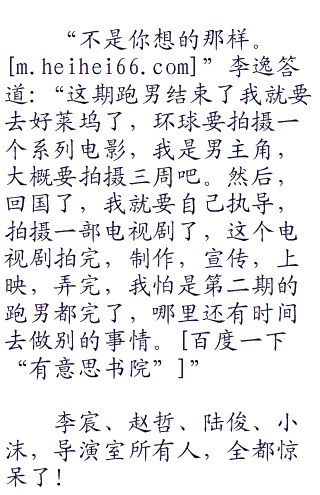 “不是你想的那样。
[m.heihei66.com]”李逸答
道:“这期跑男结束了我就要
去好莱坞了，环球要拍摄一
个系列电影，我是男主角，
大概要拍摄三周吧。然后，
回国了，我就要自己执导，
拍摄一部电视剧了，这个电
视剧拍完，制作，宣传，上
映，弄完，我怕是第二期的
跑男都完了，哪里还有时间
去做别的事情。[百度一下
“有意思书院”]”
李宸、赵哲、陆俊、小
沫，导演室所有人，全都惊
呆了!